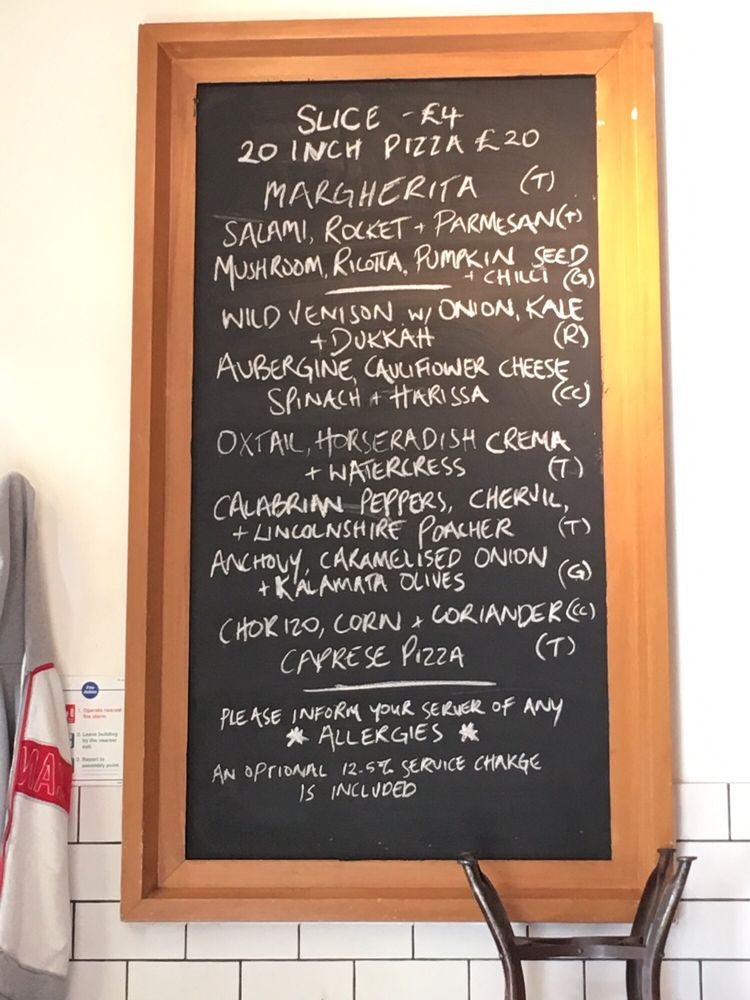 SLICE - £4
20 INCH PIZZA £20
MARGHERITA (T)
SALAMI, ROCKET + PARMESAN (T)
MUSHROOM, RICOTTA, PUMPKIN SEED
+ CHILLI (G)
WILD VENISON W/ ONION, KALE
+ DUKKAH (R)
AUBERGINE, CAULIFLOWER CHEESE
SPINACH + HARISSA (CC)
OXTAIL, HORSERADISH CREMA
+ WATERCRESS (T)
CALABRIAN PEPPERS, CHERVIL,
+ LINCOLNSHIRE POACHER (T)
ANCHOVY, CARAMELISED ONION
+ KALAMATA OLIVES (G)
CHORIZO, CORN + CORIANDER (CC)
CAPRESE PIZZA (T)
PLEASE INFORM YOUR SERVER OF ANY
* ALLERGIES *
AN OPTIONAL 12.5% SERVICE CHARGE
IS INCLUDED
Fire
Action
1. Operate nearest
fire alarm.
2. Leave building
by the nearest
exit.
3. Report to
assembly point.